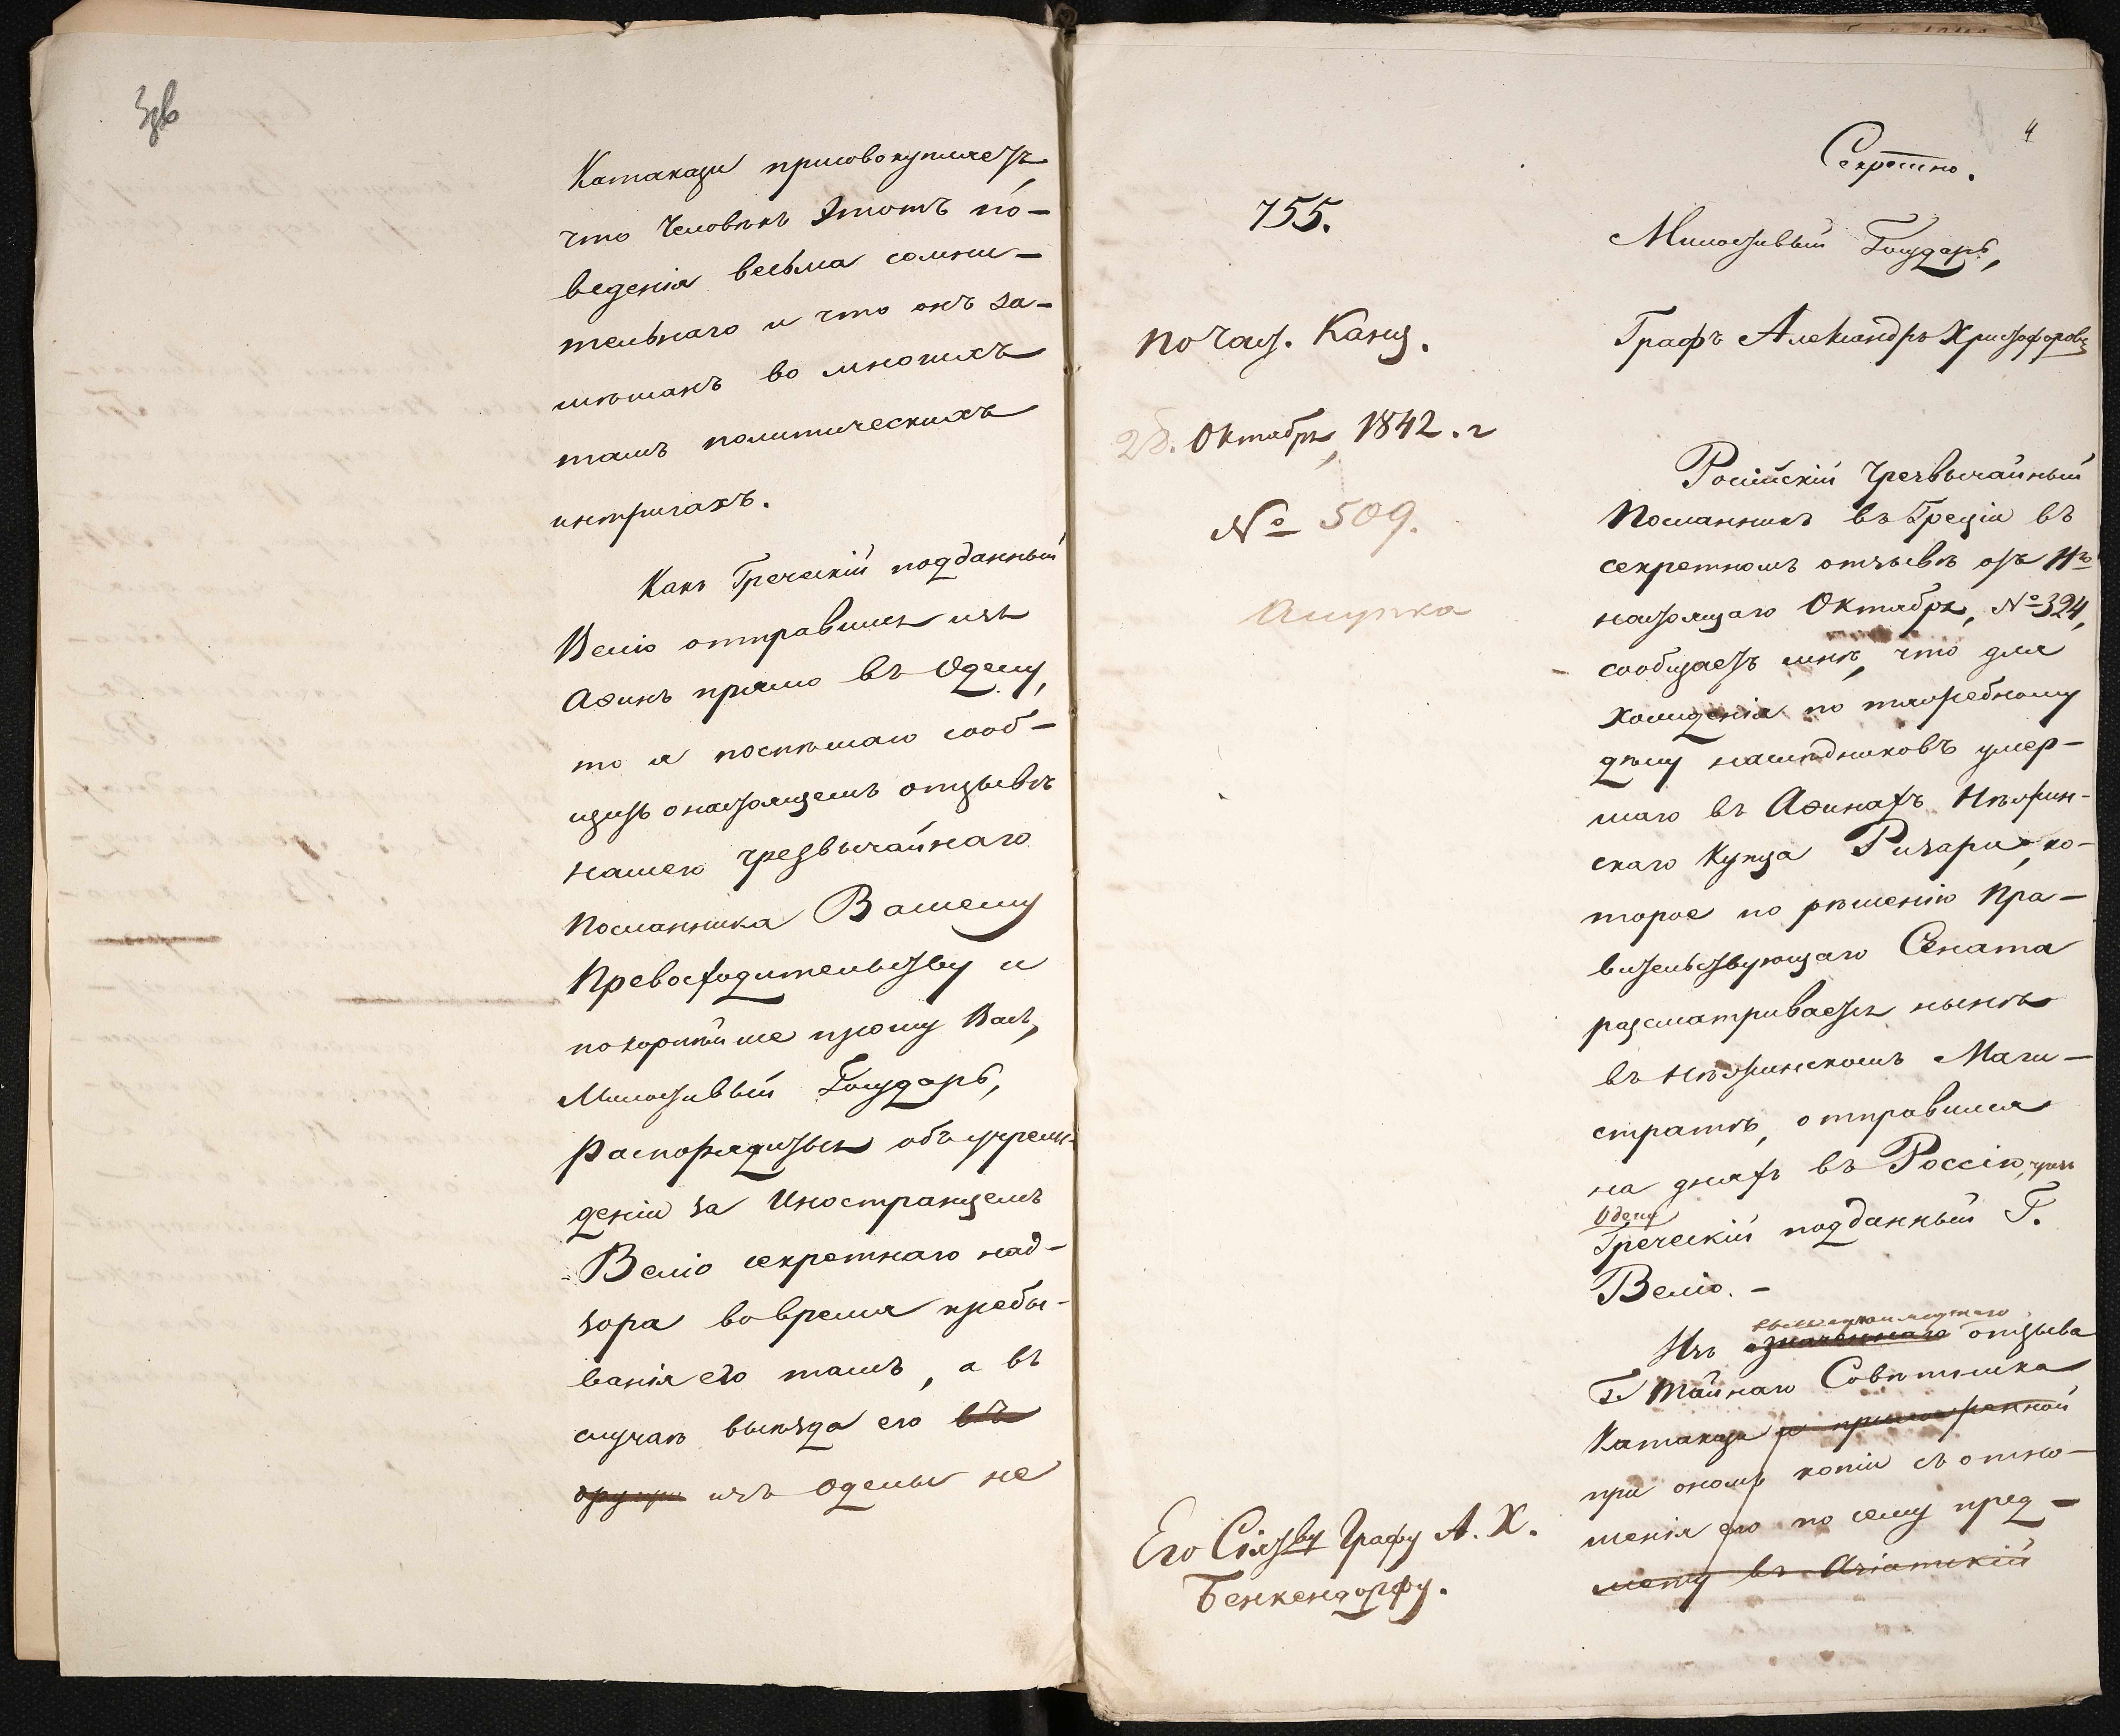 3об
Катакази присовокупляетъ
что Человѣкъ Этотъ по-
веденія весьма сомни-
тельнаго и что онъ за-
мѣшанъ во многихъ
тамъ политическихъ
интригахъ.
Какъ Греческій подданный
Веліо отправился изъ
Аѳинъ прямо въ Одессу,
то я поспѣшаю сооб-
щить о настоящемъ отзывѣ
нашего Чрезвычайнаго
Посланника Вашему
Превосходительству и
покорнѣйше прошу Васъ,
Милостивый Государь,
распорядиться объ учреж-
деніи за Иностранцемъ
Веліо секретнаго над-
зора во время пребы-
ванія его тамъ, а въ
случаѣ выѣзда его въ
изъ Одессы не
4
Секретно.
755.
Милостивый Государь,
Графъ Александръ Христофоровъ
По част. Канц.
28. Октября, 1842. г
№ 509.
Алупка
Російскій Чрезвычайный
Посланникъ въ Греціи въ
секретномъ отзывѣ отъ 11го
настоящаго Октября, № 324,
сообщаетъ мнѣ, что для
хожденія по тяжебному
дѣлу наслѣдниковъ умер-
шаго въ Аѳинахъ Нѣжин-
скаго Купца Ризари, ко-
торое по рѣшенію Пра-
вительствующаго Сената
разсматривается нынѣ
въ Нѣжинскомъ Маги-
стратѣ, отправился
на дняхъ въ Россію, чрезъ
Одессу
Греческій подданный Г.
Веліо. -
вышеупомянутаго
Изъ означеннаго отзыва
Г. Тайнаго Совѣтника
Катакази и приложенной
при ономъ копіи съ отно-
шенія его по сему пред-
мету въ Азіатскій
Его Сіятву Графу А. Х.
Бенкендорфу.